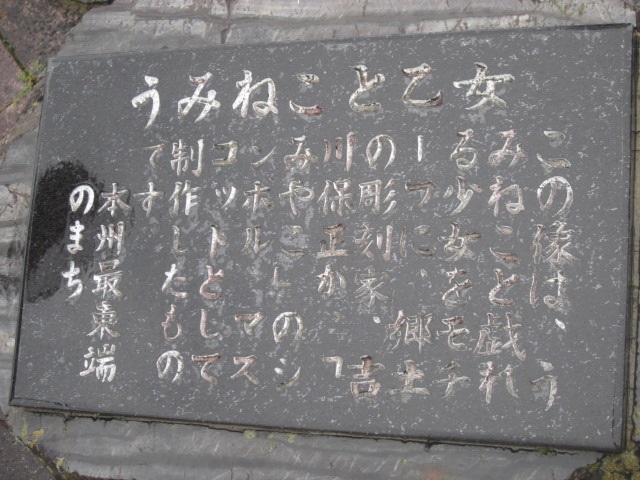 うみねこと乙女
この像は、う
みねこと戯れ
る少女をモチ
ーフに、郷土
の彫刻家、吉
川保正が「
みやこ」のシ
ンボル・マス
コットとして
制作したもの
です
本州最東端
のまち